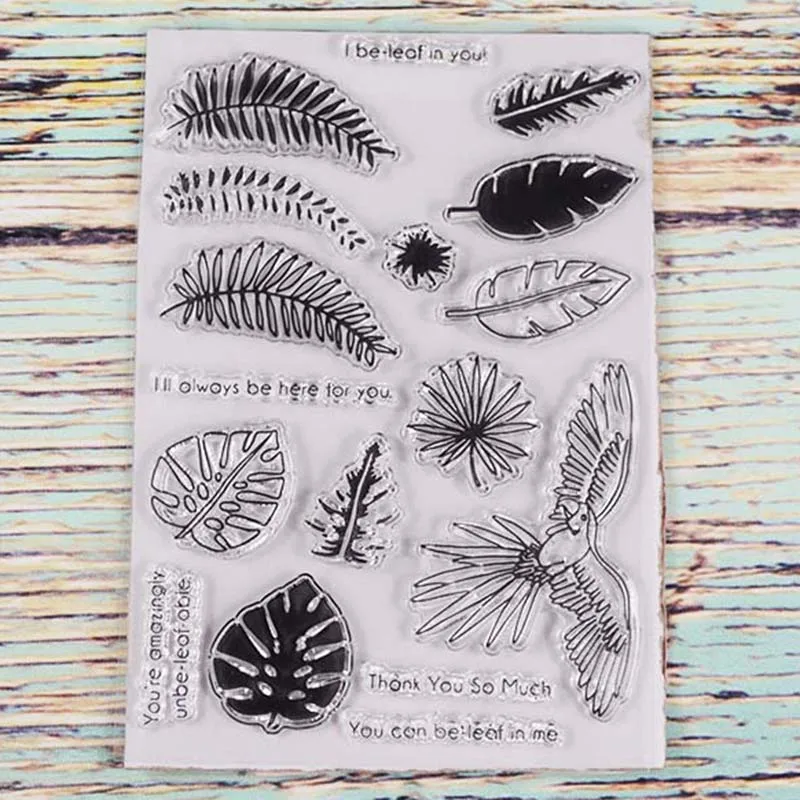 I be-leaf in you!
I'll always be here for you.
You're amazingly
unbe-leaf-able.
Thank You So Much
You can be-leaf in me.